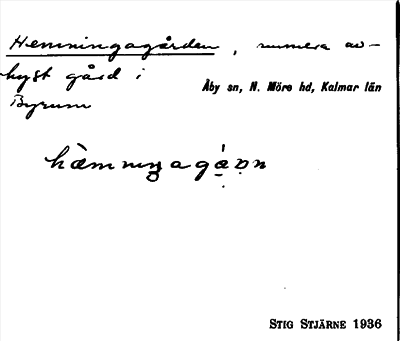 Hemningagården, numera av-
hyst gård i
Åby sn, N. Möre hd, Kalmar län
Byrum
hæ̀mniŋagáɷ̣n
STIG STJÄRNE 1936